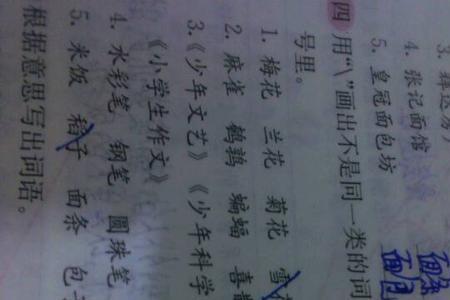 4. 张记面馆
5. 皇冠面包坊
四 用“\”画出不是同一类的词
号里。
1. 梅花 兰花 菊花 雪
2. 麻雀 鹌鹑 蝙蝠 喜
3.《少年文艺》《少年科学
《小学生作文》
4. 水彩笔 钢笔 圆珠笔
5. 米饭 稻子 面条 包
根据意思写出词语。